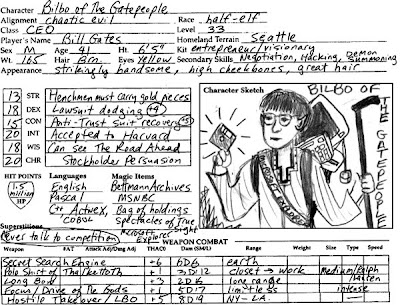 Character Bilbo of The Gatepeople
Alignment chaotic evil Race half-elf
Class CEO Level 33
Player's Name Bill Gates Homeland Terrain Seattle
Sex M Age 41 Ht. 6'5" Kit entrepreneur/visionary
Wt. 165 Hair Brn Eyes Yellow Secondary Skills Negotiation, Hacking, Demon Summoning
Appearance strikingly handsome, high cheekbones, great hair
13 STR Henchmen must carry gold pieces
18 DEX Lawsuit dodging
15 CON Anti-Trust suit recovery
20 INT Accepted to Harvard
18 WIS Can see The Road Ahead
20 CHR Stockholder Persuasion
Character Sketch
BILBO OF THE GATEPEOPLE
HIT POINTS
1.5 million HP
Languages
English
Pascal
C++ ActiveX,
COBOL
Magic Items
Bettmann Archives
MSNBC
Bag of holdings
Spectacles of True
Microsoft Sight
Explorer
Superstitions
never talk to competition
WEAPON COMBAT
Weapon FAT Attack Adj/Dmg Adj THAC0 Dam (SM/L) Range Weight Size Type Speed
Secret Search Engine +6 6D6 earth
Polo Shirt of +1 3D12 closet → work Medium/Ralph Lauren
Long Bond +3 2D6 long range
Focus/Drive of The Gods +1 5D7 limitless intense
Hostile Takeover/LBO +5 8D9 NY-LA